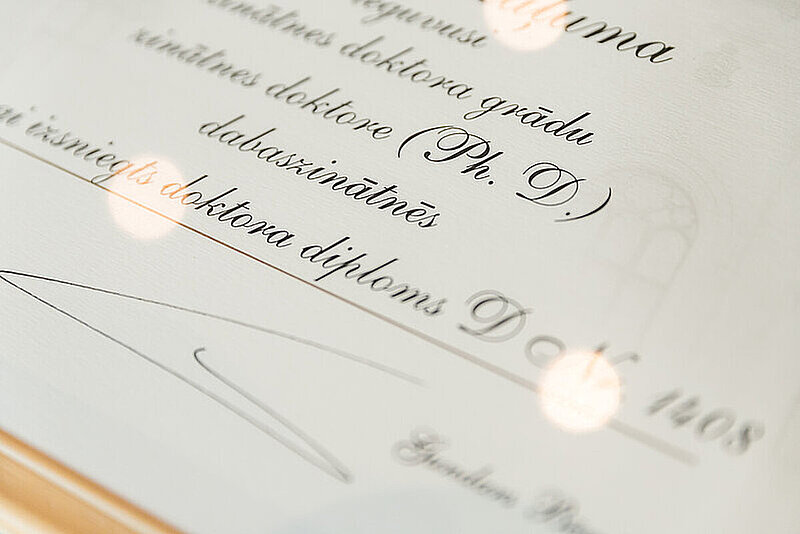 ieguvusi
zinātnes doktora grādu
zinātnes doktore (Ph. D.)
dabaszinātnēs
izsniegts doktora diploms D 1408